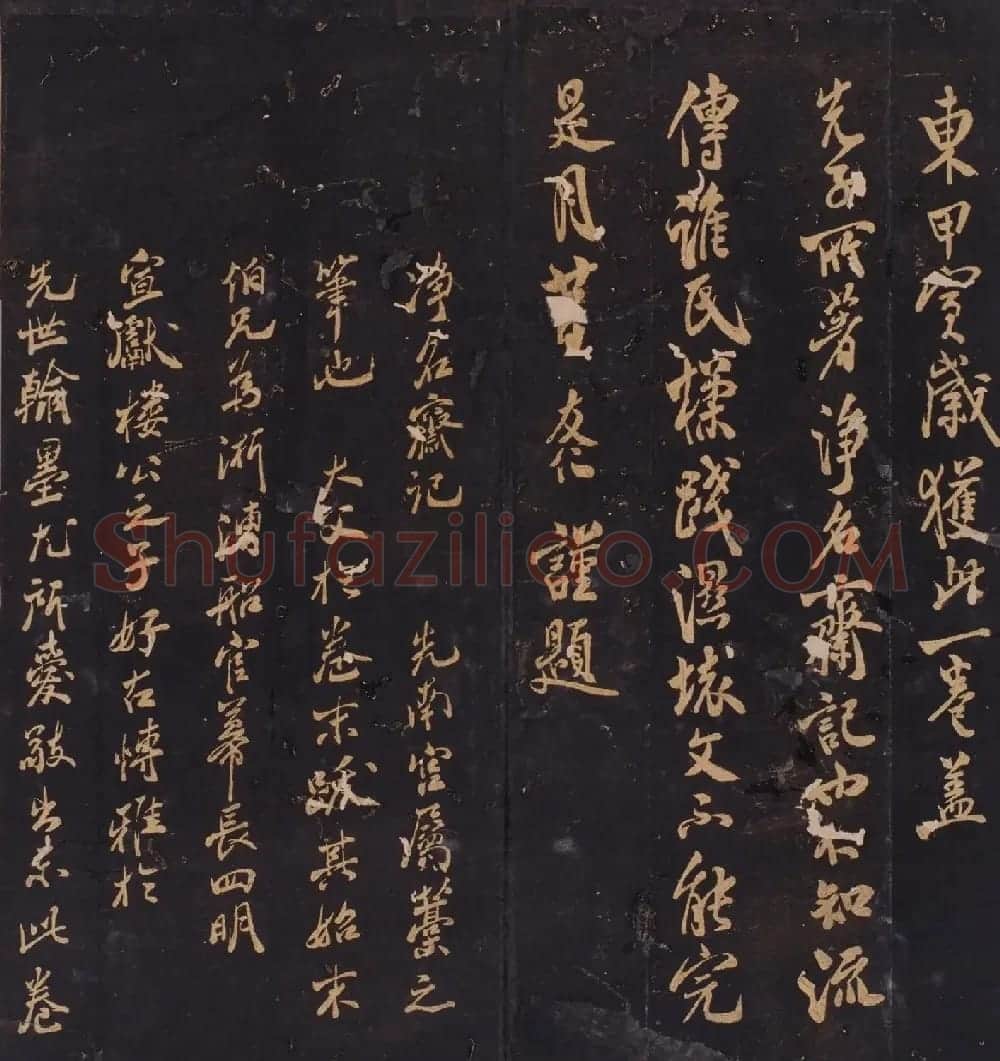 東甲寅歲獲此一卷蓋
先子所著淨名齋記也不知流
傳誰氏
壞文不能完
是月廿日友仁謹題
淨名齋記 先南宮屬藁之
筆也 大父於卷末跋其始末
伯兄為浙漕船官幕長四明
宣獻樓公之子好古博雅於
先世翰墨尤所愛敬出示此卷
Shufaziliao.COM